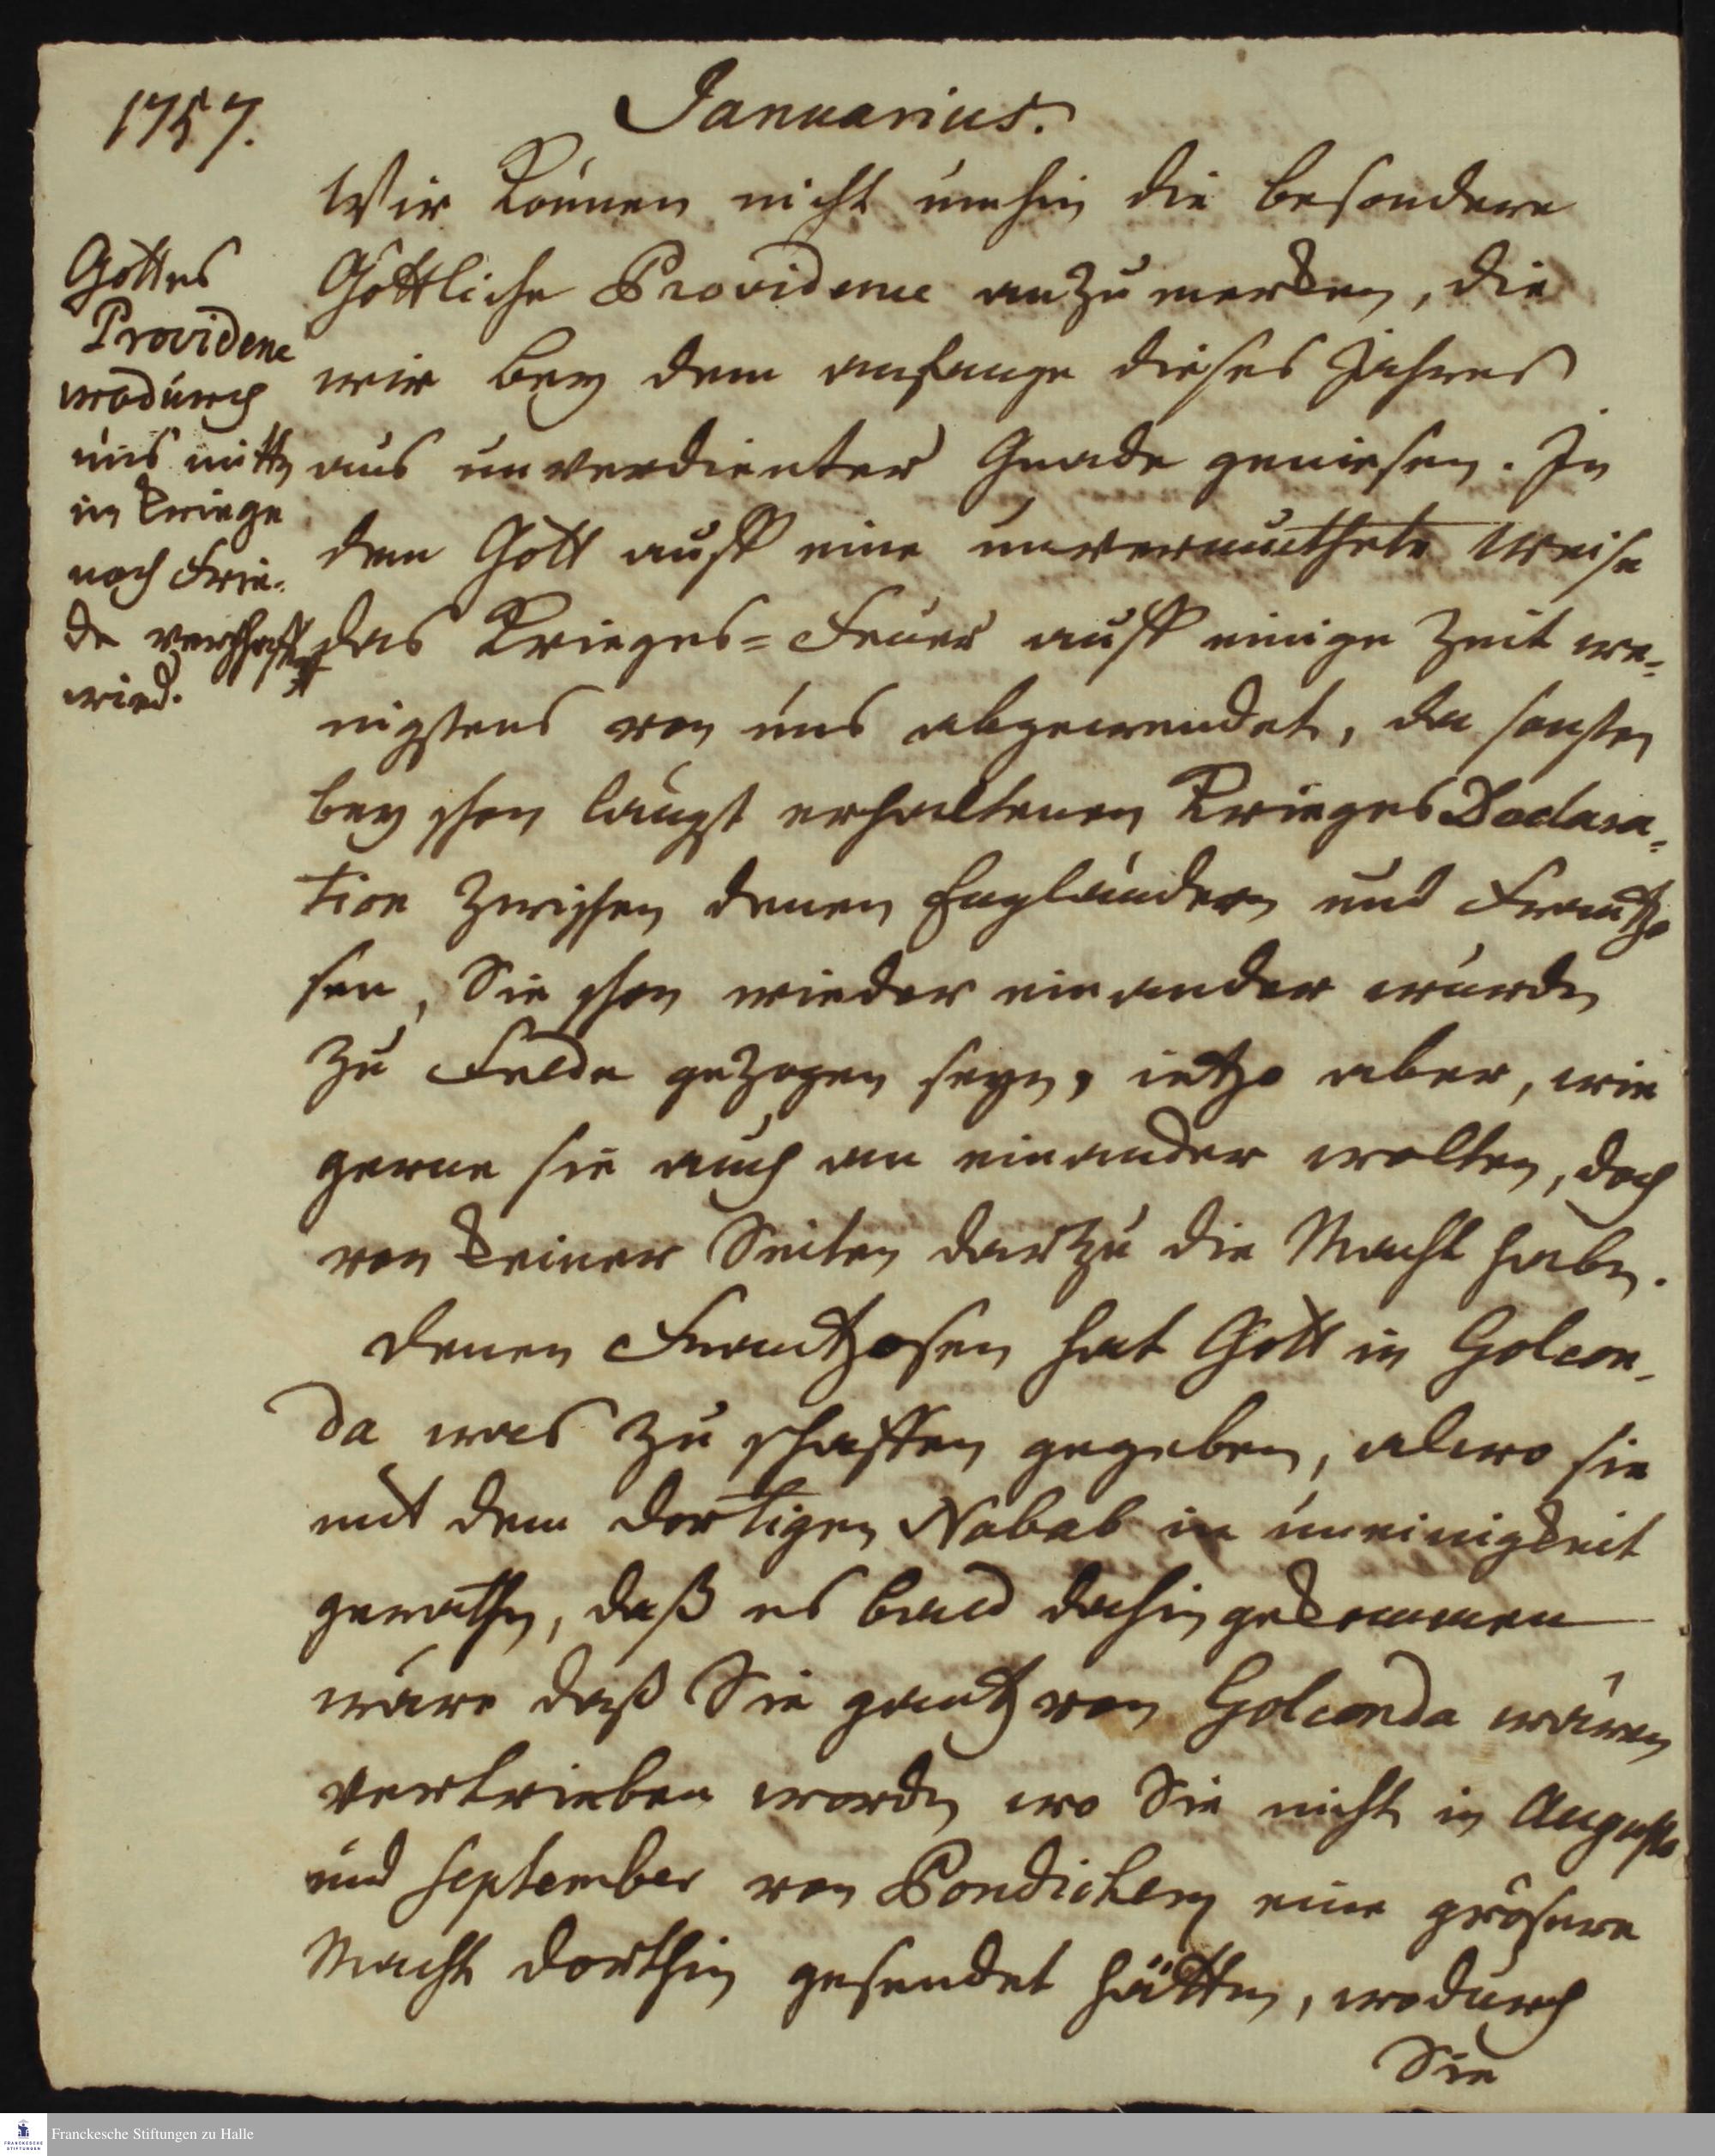 1757.
Januarius.
Gottes
Providenc
wodurch
uns mitten
im Kriege
noch Frie-
de verschafft
wird.
Wir können nicht umhin die besondere
Göttliche Providence anzumercken, die
wir bey dem anfange dieses Jahres
aus unverdienter Gnade geniesen. In
dem Gott auff eine unvermuthete Weise
das Krieges=Feuer auff einige Zeit we=
nigstens von uns abgewendet, da sonsten
bey schon längst erhaltenen Krieges Declara=
tion zwischen denen Engländern und Frantzo
sen, Sie schon wieder einander würden
zu Felde gezogen seyn, ietzo aber, wie
gerne sie auch an einander wolten, doch
von keiner Seiten dartzu die Macht haben.
Denen Frantzosen hat Gott in Golcon-
da was zu schaffen gegeben, alwo sie
mit dem dortigen Nabab in uneinigkeit
gerathen, daß es bald dahin gekommen
wäre daß Sie gantz von Golconda wären
vertrieben worden wo Sie nicht in Augusto
und September von Pondichery eine grösere
Macht dorthin gesendet hätten, wodurch
Sie
Franckesche Stiftungen zu Halle
FRANCKESCHE
STIFTUNGEN